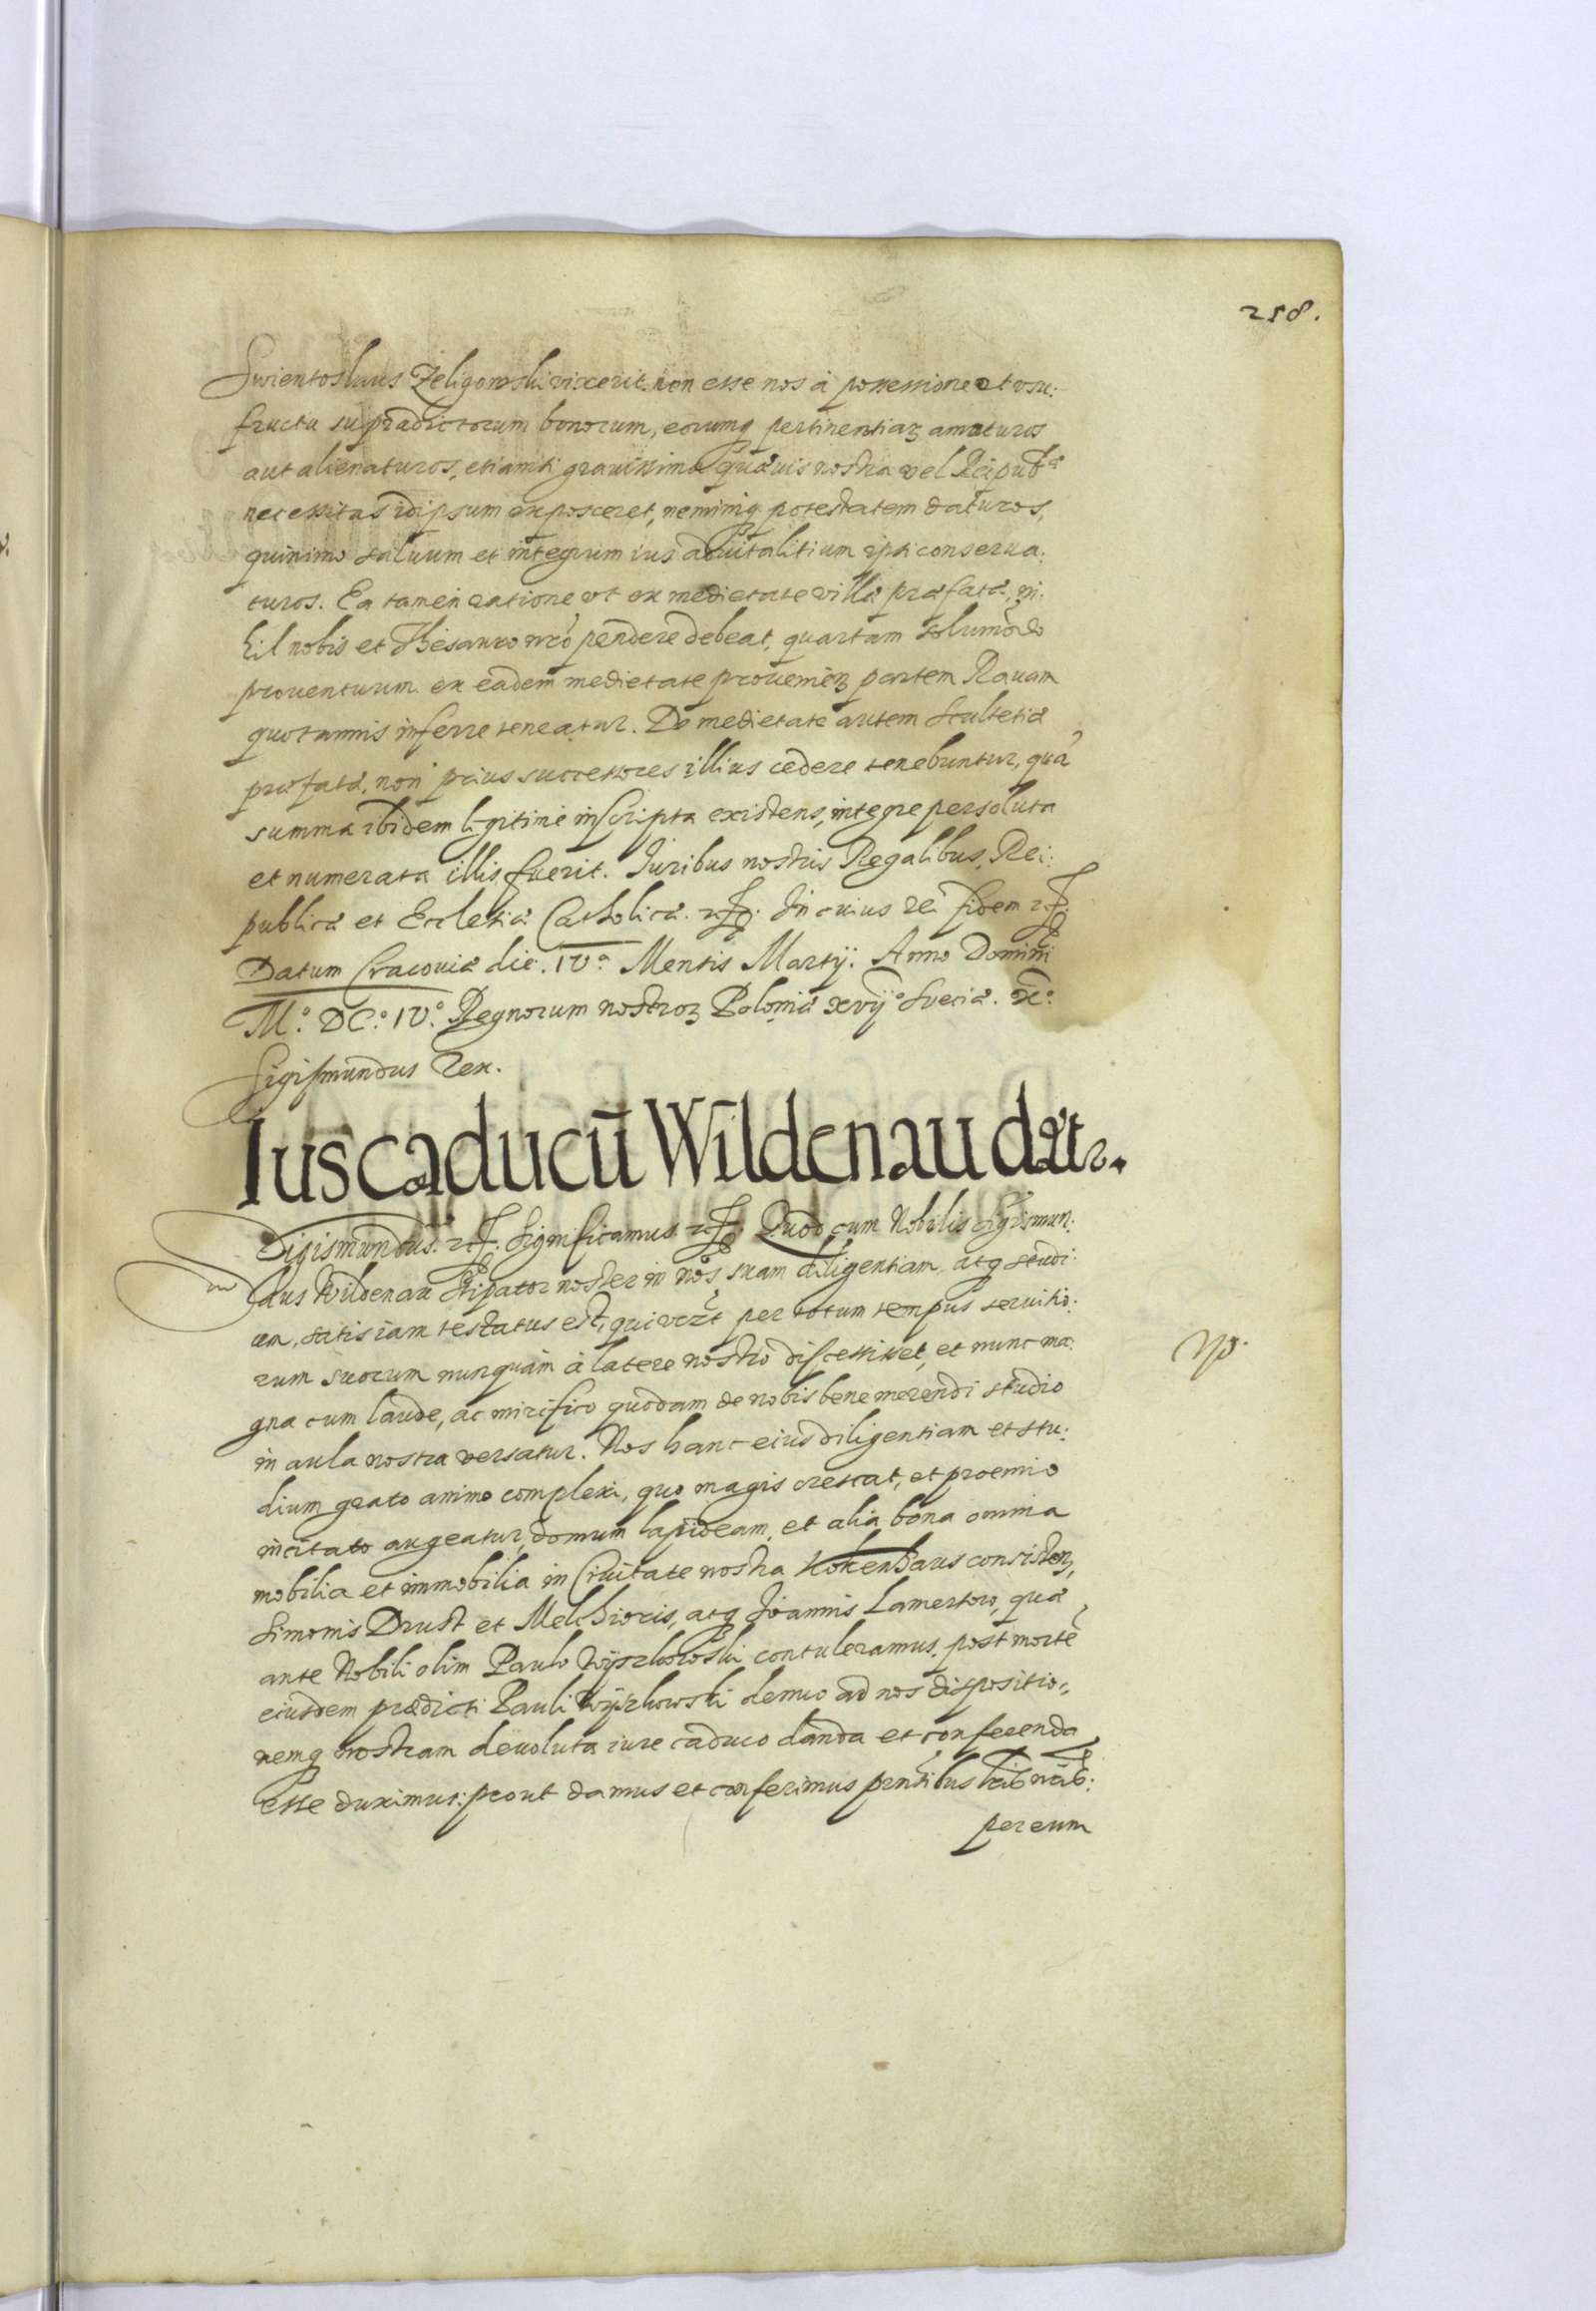 258.
Swientoslaus Zeligowski vixerit non esse nos à possessione et usu:
fructu supradictorum bonorum, eorumq pertinentiaꝝ amoturos
aut alienaturos, etiamsi grauissima quæuis nostra vel Reipubᵃ
necessitas idipsum exposceret, neminiq potestatem daturos,
quinimo saluum et integrum ius aduitalitium ipsi conserua:
turos. Ea tamen ratione vt ex medietate villæ præfatæ, ni:
hil nobis et Thesauro nrõ pendere debeat, quartam solumodo
prouentuum ex eadem medietate prouenieñ partem Rauam
quotannis inferre teneatur. De medietate autem Scultetiæ
præfatæ, non prius successores illius cedere tenebuntur, quã
summa ibidem legitime inscripta existens, integre persoluta
et numerata illis fuerit. Iuribus nostris Regalibus, Rei:
publicæ et Ecclesiæ Catholicæ. In cuius rei fidem
Datum Cracouiæ die. IVᵃ Mensis Martij. Anno Domini
M.º DC.º IV.º Regnorum nostroꝝ Poloniæ xvijº Sueciæ. xº.
Sigismundus Rex.
Ius caducũ Wildenau datr.
Sigismundus. Significamus Quod cum Nobilis Sigismun:
dus Wildenau Stipator noster in nos, suam diligentiam, atq studi:
um, satis iam testatus est, per totum tempus seruitio:
rum suorum nunquam à latere nostro discessisset, et nunc ma:
gna cum laude, ac mirifico quodam de nobis bene merendi studio
in aula nostra versatur. Nos hanc eius diligentiam et stu:
dium grato animo complexi, quo magis crescat, et prœmio
incitato augeatur, domum lapideam, et alia bona omnia
mobilia et immobilia in Ciuitate nostra Kokenhaus consisteñ,
Simonis Drust et Melchioris, atq Joannis Lamerstow, quæ
ante Nobili olim Paulo contuleramus, post mortẽ
eiusdem prædicti Pauli denuo ad nos dispositio:
nemq nostram deuoluta iure caduco danda et conferenda
esse duximus: prout damus et conferimus prñtibus lrĩb nrĩb:
per eum